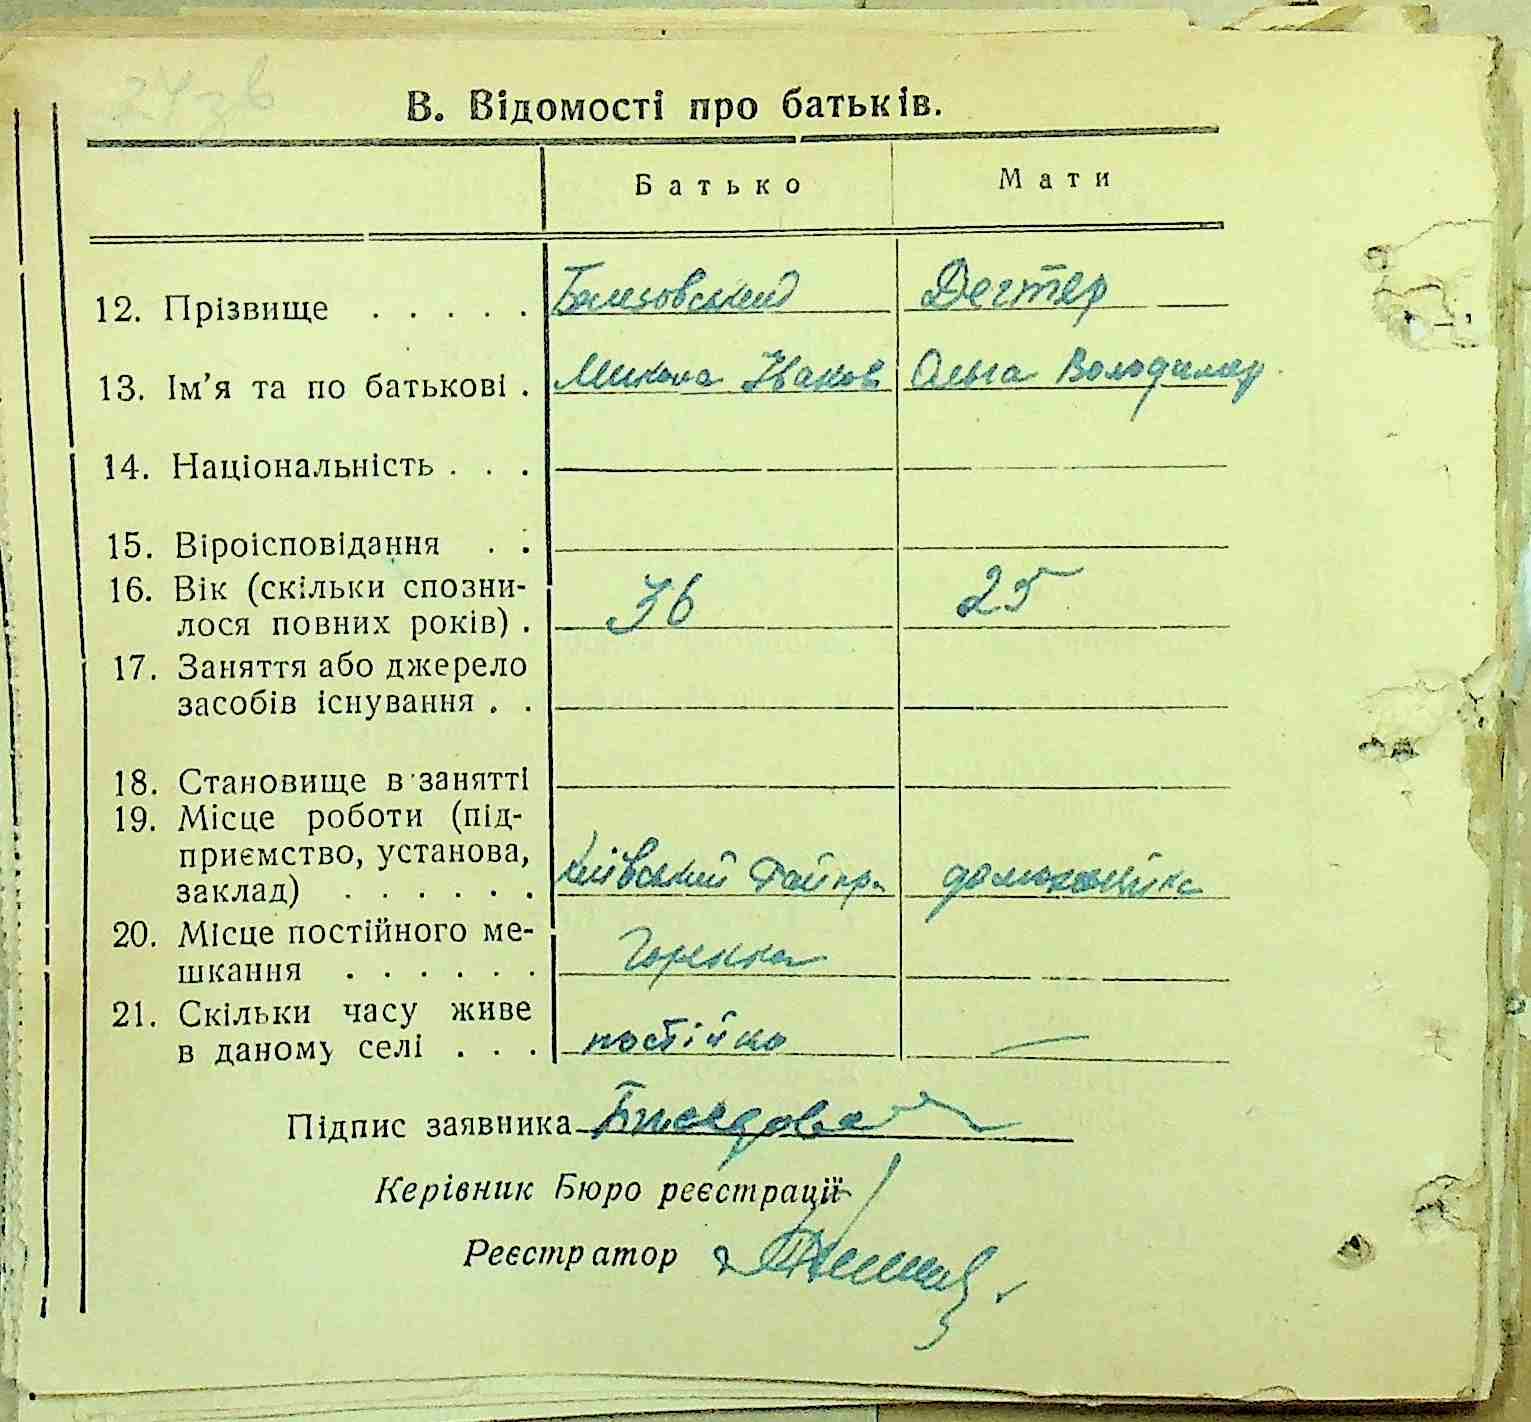 24зв
В. Відомості про батьків.
Батько Мати
12. Прізвище . . . . . Дегтер
13. Ім'я та по батькові . Микола Іванов Ольга Володимир
14. Національність . . .
15. Віроісповідання . .
16. Вік (скільки спозни-
лося повних років) . 36 25
17. Заняття або джерело
засобів існування . .
18. Становище в занятті
19. Місце роботи (під-
приємство, установа,
заклад) . . . . . . Київський
20. Місце постійного ме-
шкання . . . . . . Горенка
21. Скільки часу живе
в даному селі . . . постійно —
Підпис заявника
Керівник Бюро реєстрації
Реєстратор